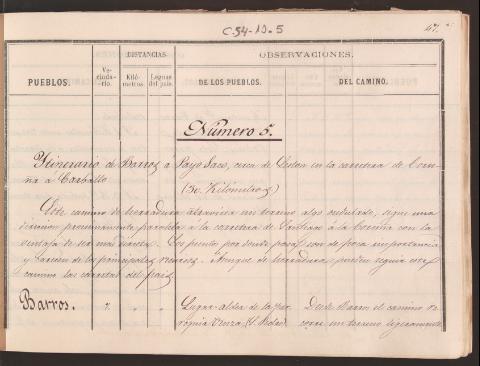 C-54-19-5
47
PUEBLOS. Ve-cinda-rio. DISTANCIAS. OBSERVACIONES.
Kiló-metros. Leguas del país. DE LOS PUEBLOS. DEL CAMINO.
Número 5.
Itinerario de Barros a Payo Saco, cerca de en la carretera de Coru-
ña á Carballo
(30 Kilómetros)
Este camino de herradura atraviesa un terreno algo ondulado, sigue una
dirección proximamente paralela a la carretera de Santiago á la Coruña con la
ventaja de ser mas Los puntos por donde pasa son de poca importancia
y carecen de los principales recursos. Aunque de herradura, pueden seguir este
camino las carretas del pais
Barros. " " " Lugar-aldea de la par- Desde Barros el camino re-
roquia corre un terreno ligeramente